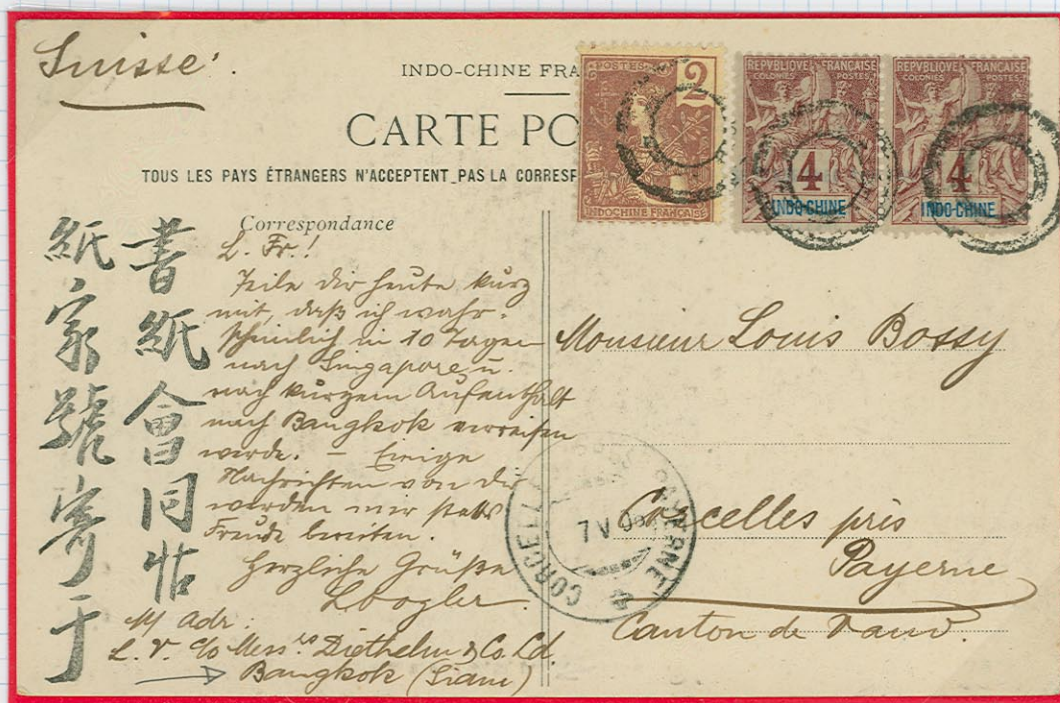 Suisse.
INDO-CHINE FRA
CARTE PO
TOUS LES PAYS ÉTRANGERS N'ACCEPTENT PAS LA CORRESP
POSTES
2
INDOCHINE FRANÇAISE
REPVBLIQVE FRANÇAISE
COLONIES POSTES
4
INDO-CHINE
REPVBLIQVE FRANÇAISE
COLONIES POSTES
4
INDO-CHINE
書紙會同帖
紙家號寄于
Correspondance
L. Fr.!
Teile dir heute kurz
mit, daß ich wahr-
scheinlich in 10 Tagen
nach Singapore u.
nach kurzem Aufenthalt
nach Bangkok verreisen
werde. – Einige
Nachrichten von dir
werden mir stets
Freude bereiten.
Herzliche Grüße
M Adr:
L. V. c/o Mess rs Diethelm & Co. Ld.
Bangkok (Siam)
Monsieur Louis Bossy
Corcelles près
Payerne
Canton de Vaud.
CORCELLES PRÈS PAYERNE
7 V 0